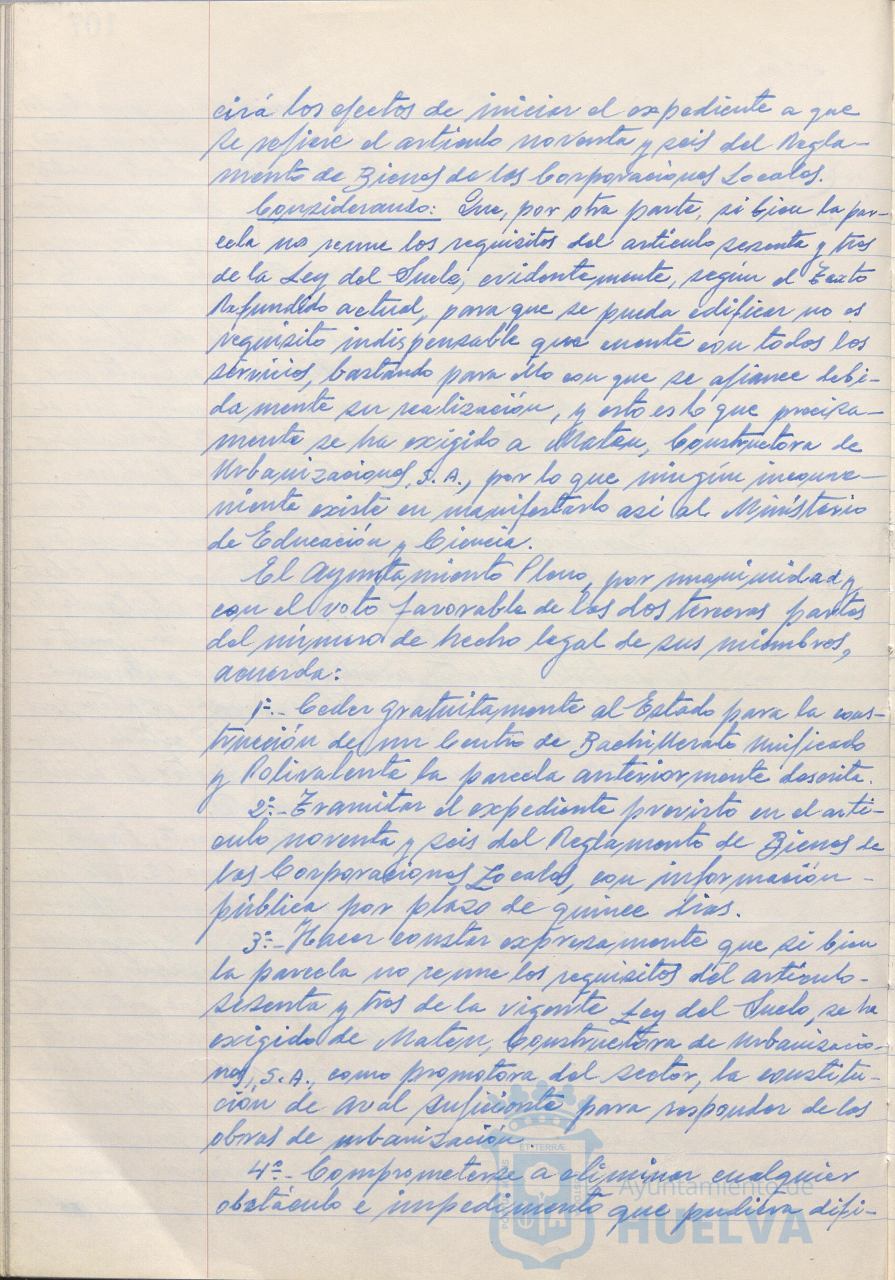 cirá los efectos de iniciar el expediente a que
se refiere el artículo noventa y seis del Regla-
mento de Bienes de las Corporaciones Locales.
Considerando: Que, por otra parte, si bien la par-
cela no reune los requisitos del artículo sesenta y tres
de la Ley del Suelo, evidentemente, según el Texto
Refundido actual, para que se pueda edificar no es
requisito indispensable que cuente con todos los
servicios, bastando para ello con que se afiance debi-
damente su realización, y esto es lo que precisa-
mente se ha exigido a Maten, Constructora de
Urbanizaciones, S.A., por lo que ningún inconve-
niente existe en manifestarlo así al Ministerio
de Educación y Ciencia.
El Ayuntamiento Pleno, por unanimidad y
con el voto favorable de las dos terceras partes
del número de hecho legal de sus miembros,
acuerda:
1º.- Ceder gratuitamente al Estado para la cons-
trucción de un Centro de Bachillerato Unificado
y Polivalente la parcela anteriormente descrita.
2º.- Tramitar el expediente previsto en el artí-
culo noventa y seis del Reglamento de Bienes de
las Corporaciones Locales, con información -
pública por plazo de quince días.
3º.- Hacer constar expresamente que si bien
la parcela no reune los requisitos del artículo -
sesenta y tres de la vigente Ley del Suelo, se ha
exigido de Maten, Constructora de Urbanizacio-
nes, S.A., como promotora del sector, la constitu-
ción de aval suficiente para responder de las
obras de urbanización.
4º.- Comprometerse a eliminar cualquier
obstáculo e impedimento que pudiera difi-
Ayuntamiento de
HUELVA